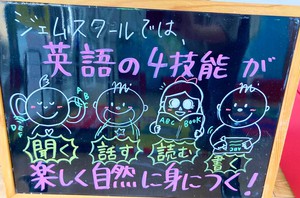 ジェムスクールでは、
英語の4技能が
AB
DEF
ABC BOOK
聞く 話す 読む 書く
楽しく自然に身につく!